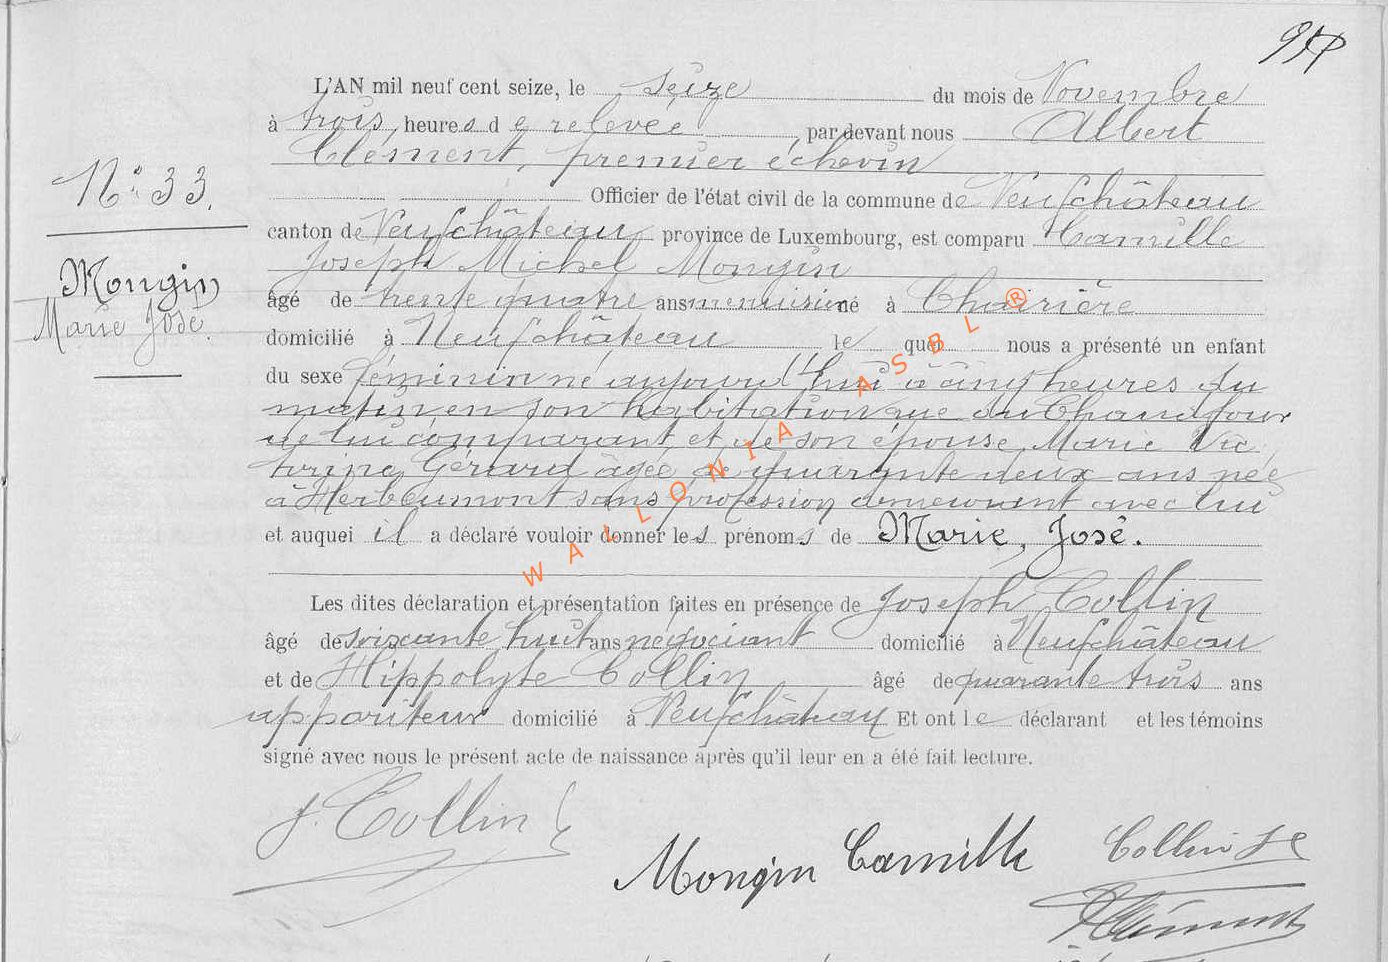 L'AN mil neuf cent seize, le seize du mois de Novembre
à trois heures de relevée, par devant nous Albert
Clément, premier échevin
N° 33.
Officier de l'état civil de la commune de Neufchâteau
canton de Neufchâteau province de Luxembourg, est comparu Camille
Joseph Michel Mongin
Mongin
Marie José.
âgé de trente quatre ans menuisier né à Chairière
domicilié à Neufchâteau lequel nous a présenté un enfant
du sexe féminin né aujourd'hui à cinq heures du
matin en son habitation rue du Chaudfour
de lui comparant et de son épouse Marie Vic
torine Gérard âgée de quarante deux ans née
à Herbeumont sans profession demeurant avec lui
et auquel il a déclaré vouloir donner les prénoms de Marie, José.
Les dites déclaration et présentation faites en présence de Joseph Collin
âgé de soixante huit ans négociant domicilié à Neufchâteau
et de Hippolyte Collin âgé de quarante trois ans
appariteur domicilié à Neufchâteau Et ont le déclarant et les témoins
signé avec nous le présent acte de naissance après qu'il leur en a été fait lecture.
J. Collin
Mongin Camille
Collin
Clément
WALLONIA ASBL ®